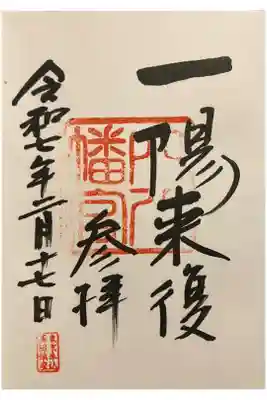 一陽来復
参拝
令和七年二月十七日
穴八
幡宮